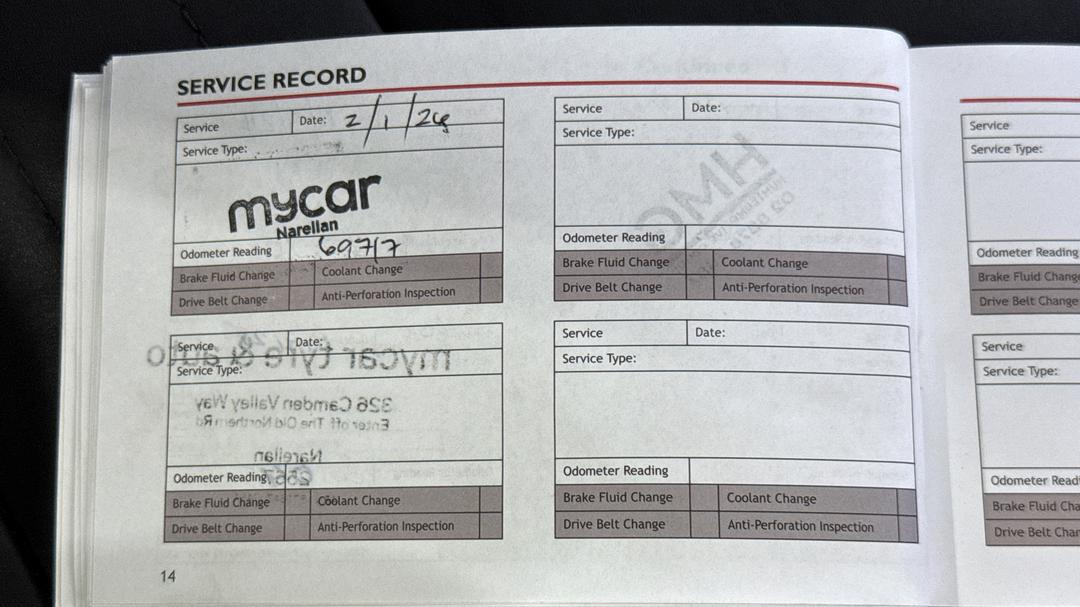 SERVICE RECORD
Service Date: 2/1/24
Service Type:
mycar
Narellan
Odometer Reading 69717
Brake Fluid Change Coolant Change
Drive Belt Change Anti-Perforation Inspection
Service Date:
Service Type:
HMC
Odometer Reading
Brake Fluid Change Coolant Change
Drive Belt Change Anti-Perforation Inspection
Service Date:
Service Type:
mycar tyre & auto
326 Camden Valley Way
Enter off The Old Northern Rd
Narellan
Odometer Reading
Brake Fluid Change Coolant Change
Drive Belt Change Anti-Perforation Inspection
Service Date:
Service Type:
Odometer Reading
Brake Fluid Change Coolant Change
Drive Belt Change Anti-Perforation Inspection
14
Service
Service Type:
Odometer Reading
Brake Fluid Change
Drive Belt Change
Service
Service Type:
Odometer Readi
Brake Fluid Cha
Drive Belt Chan